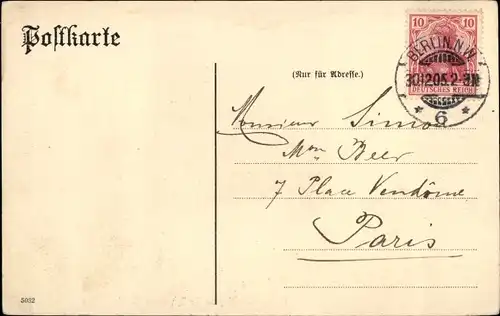 Postkarte
10 10
DEUTSCHES REICH
BERLIN. N.W.
30.12.05. 2-3N
* 6 *
(Nur für Adresse.)
Monsieur Simon
Mon Beer
7 Place Vendôme
Paris
5032